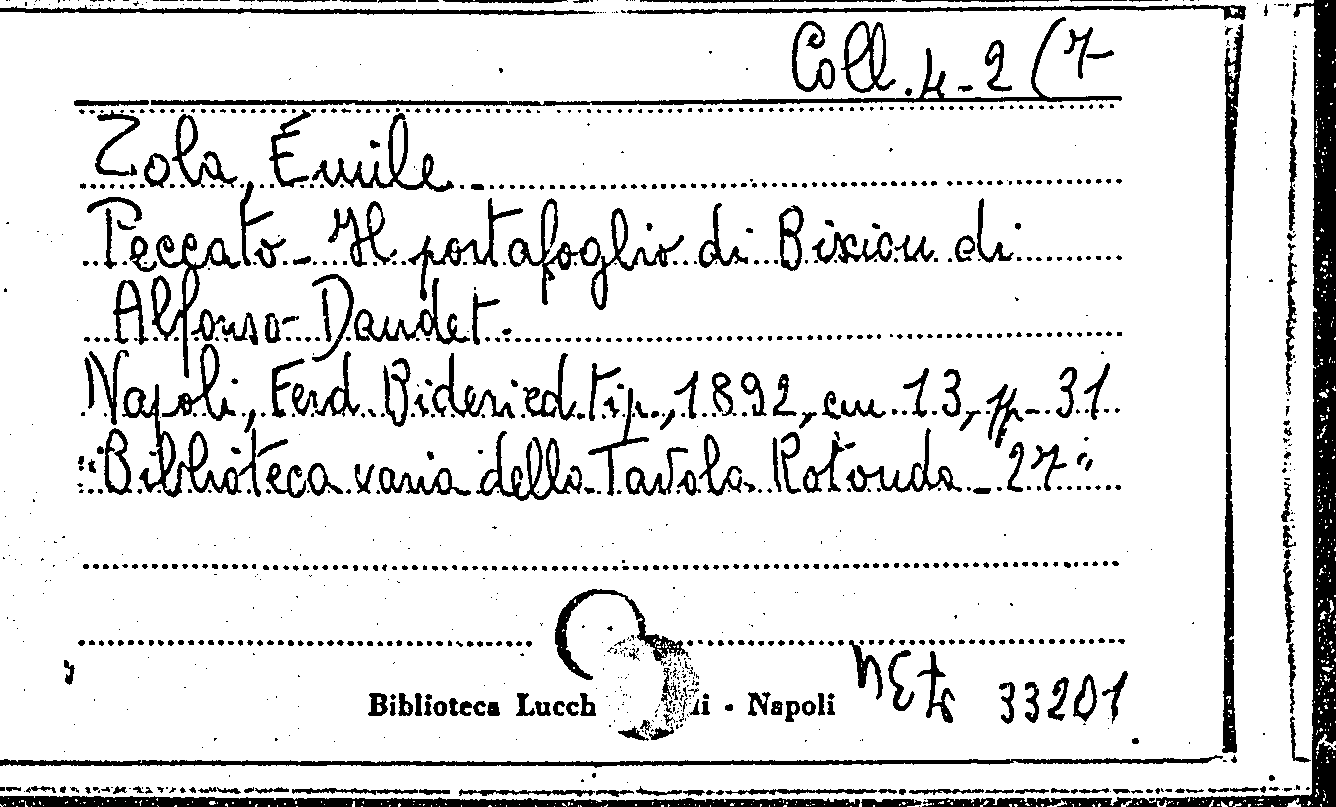 Coll. 4-2 (7
Zola, Émile -
Peccato - Il portafoglio di Bixiou di
Alfonso Daudet.
Napoli, Ferd. Bideri ed. tip., 1892, cm 13, pp. 31
"Biblioteca varia della Tavola Rotonda - 27"
Biblioteca Lucch li - Napoli
33201